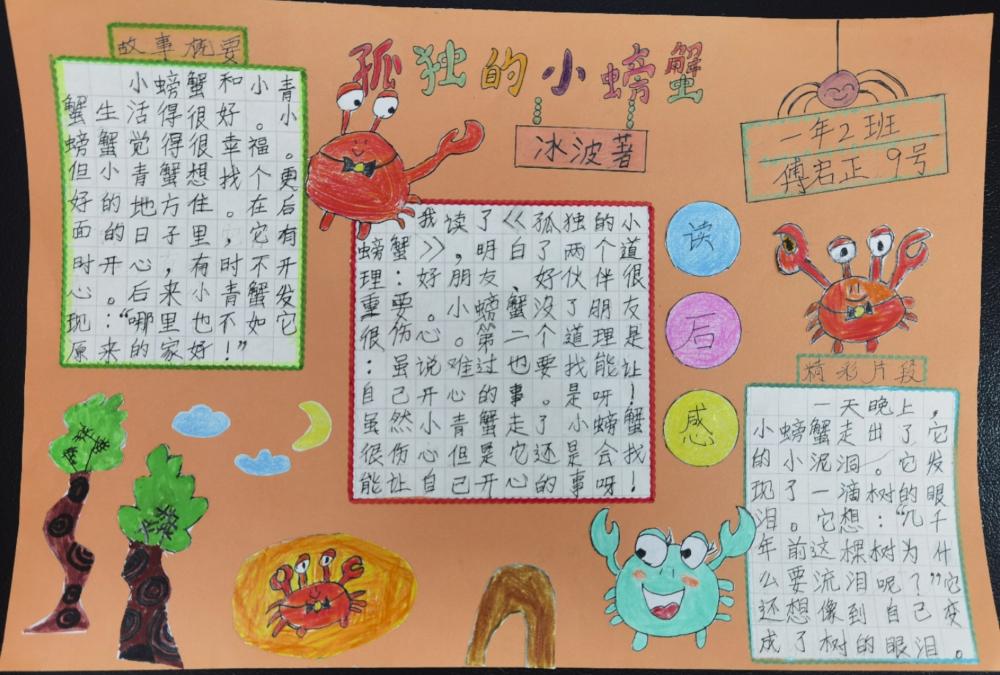 孤独的小螃蟹
冰波著
一年2班
傅君正 9号
故事概要
小螃蟹和小青
蟹生活得很好。小
螃蟹觉得很幸福。
但小青蟹想找个更
好的地方住。在后
面的日子里，它有
时开心，有时不开
心。后来小青蟹发
现：“哪里也不如它
原来的家好！”
我读了《孤独的小
螃蟹》，明白了两个道
理：好朋友、好伙伴很
重要。小螃蟹没了朋友
很伤心。第二个道理是
：虽说难过也要找能让
自己开心的事。是呀！
虽然小青蟹走了小螃蟹
很伤心但是它还是会找
能让自己开心的事呀！
读
后
感
精彩片段
一天晚上，
小螃蟹走出了它
的小泥洞。它发
现了一滴树的眼
泪。它想：“几千
年前这棵树为什
么要流泪呢？”它
还想像到自己变
成了树的眼泪。